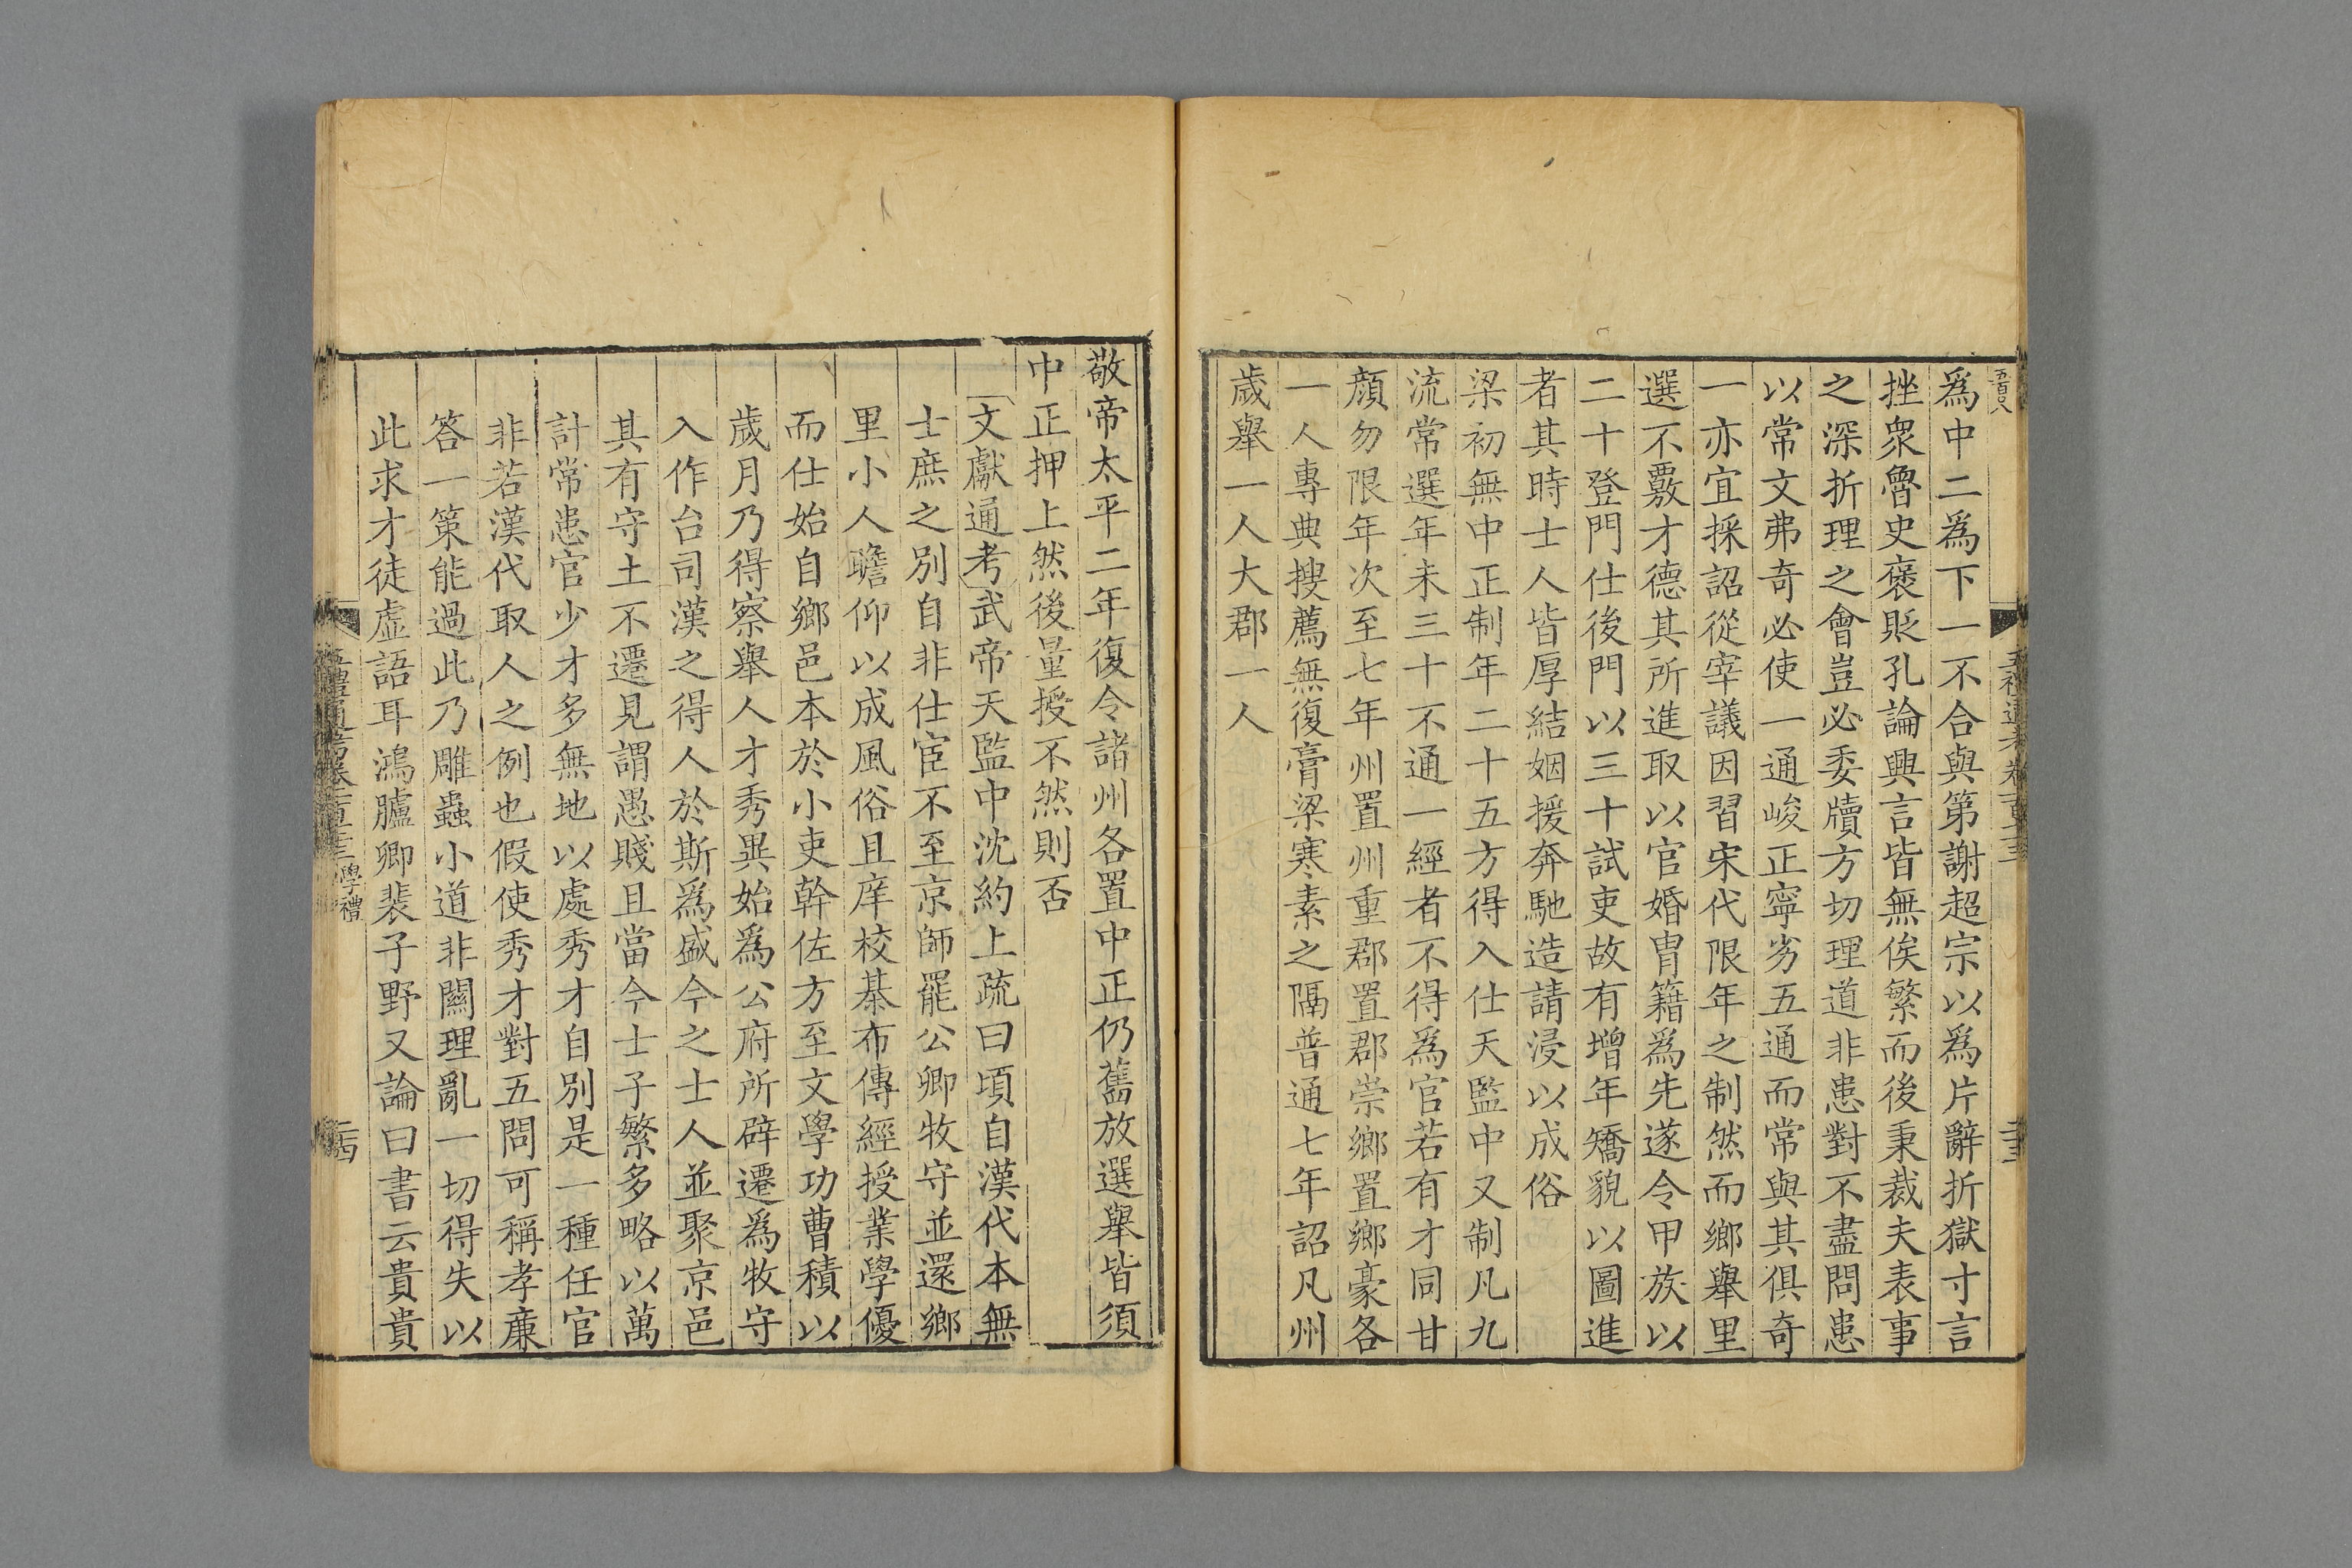 爲中二爲下一不合與第謝超宗以爲片辭折獄寸言
挫衆魯史褒貶孔論興言皆無俟繁而後秉裁夫表事
之深折理之會豈必委牘方切理道非患對不盡問患
以常文弗奇必使一通峻正寧劣五通而常與其俱奇
一亦宜採詔從宰議因習宋代限年之制然而鄉舉里
選不覈才德其所進取以官婚冑籍爲先遂令甲族以
二十登門仕後門以三十試吏故有增年矯貌以圖進
者其時士人皆厚結姻援奔馳造請浸以成俗
梁初無中正制年二十五方得入仕天監中又制凡九
流常選年未三十不通一經者不得爲官若有才同甘
顔勿限年次至七年州置州重郡置郡崇鄉置鄉豪各
一人專典搜薦無復膏粱寒素之隔普通七年詔凡州
歲舉一人大郡一人
敬帝太平二年復令諸州各置中正仍舊放選舉皆須
中正押上然後量授不然則否
文獻通考武帝天監中沈約上疏曰頃自漢代本無
士庶之別自非仕宦不至京師罷公卿牧守並還鄉
里小人瞻仰以成風俗且庠校棊布傳經授業學優
而仕始自鄉邑本於小吏幹佐方至文學功曹積以
歲月乃得察舉人才秀異始爲公府所辟遷爲牧守
入作台司漢之得人於斯爲盛今之士人並聚京邑
其有守土不遷見謂愚賤且當今士子繁多略以萬
計常患官少才多無地以處秀才自別是一種任官
非若漢代取人之例也假使秀才對五問可稱孝廉
答一策能過此乃雕蟲小道非關理亂一切得失以
此求才徒虛語耳鴻臚卿裴子野又論曰書云貴貴
學禮